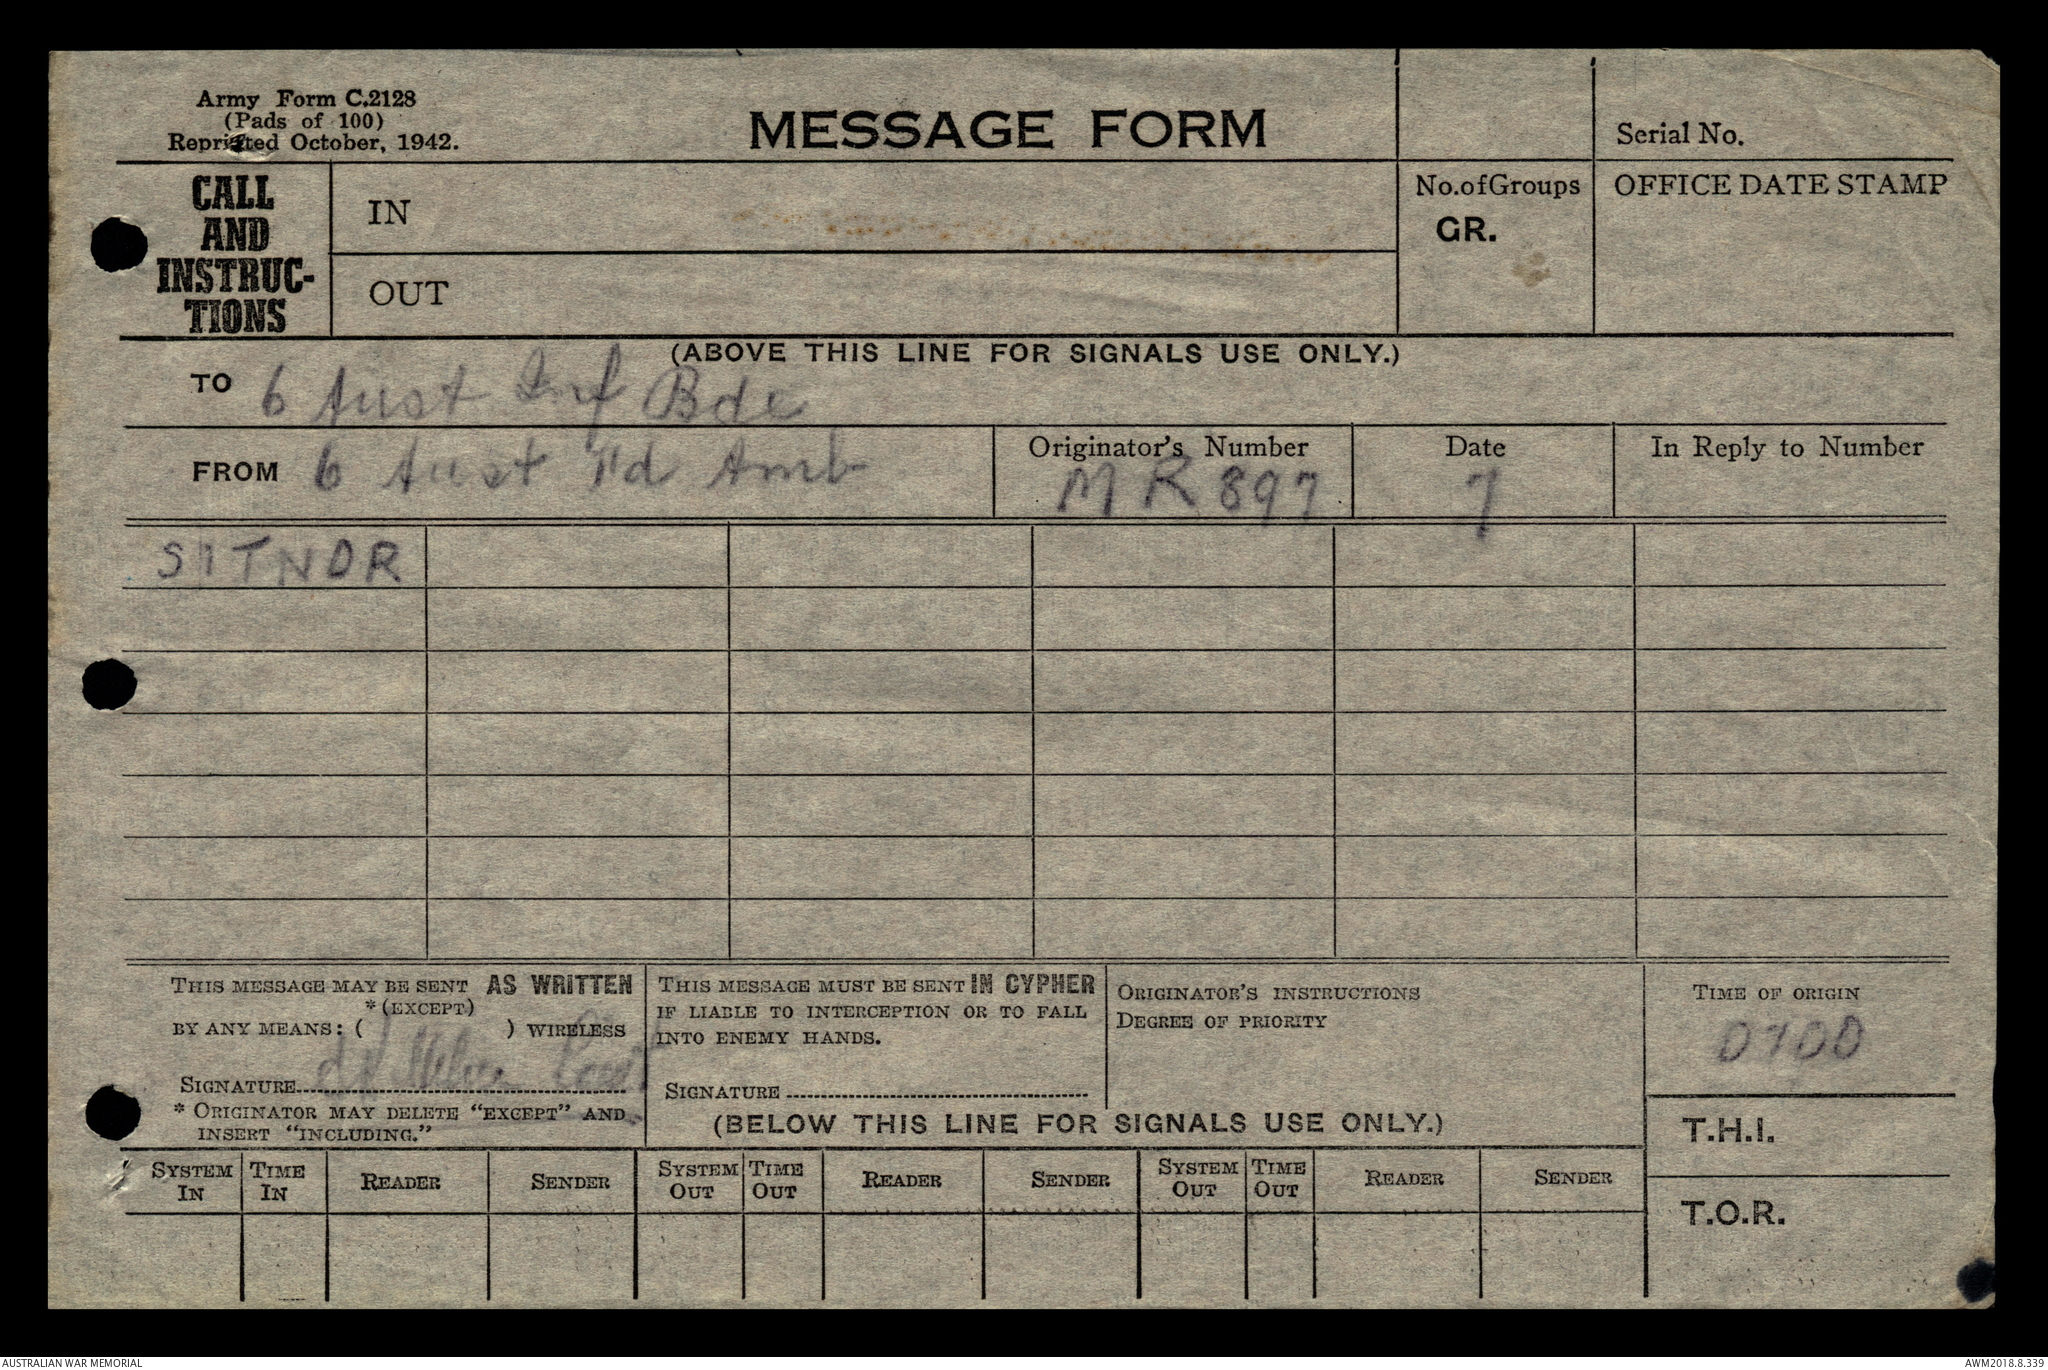 Army Form C.2128
(Pads of 100)
Reprinted October, 1942.
MESSAGE FORM
Serial No.
CALL
AND
INSTRUC-
TIONS
IN
OUT
No.of Groups
GR.
OFFICE DATE STAMP
(ABOVE THIS LINE FOR SIGNALS USE ONLY.)
TO 6 Aust Inf Bde
FROM 6 Aust Fd Amb
Originator's Number
MR897
Date
7
In Reply to Number
SITNOR
THIS MESSAGE MAY BE SENT AS WRITTEN
*(EXCEPT)
BY ANY MEANS: ( ) WIRELESS
SIGNATURE
* ORIGINATOR MAY DELETE "EXCEPT" AND
INSERT "INCLUDING."
THIS MESSAGE MUST BE SENT IN CYPHER
IF LIABLE TO INTERCEPTION OR TO FALL
INTO ENEMY HANDS.
SIGNATURE
ORIGINATOR'S INSTRUCTIONS
DEGREE OF PRIORITY
TIME OF ORIGIN
0700
(BELOW THIS LINE FOR SIGNALS USE ONLY.)
T.H.I.
T.O.R.
SYSTEM IN
TIME IN
READER
SENDER
SYSTEM OUT
TIME OUT
READER
SENDER
SYSTEM OUT
TIME OUT
READER
SENDER
AUSTRALIAN WAR MEMORIAL
AWM2018.8.339